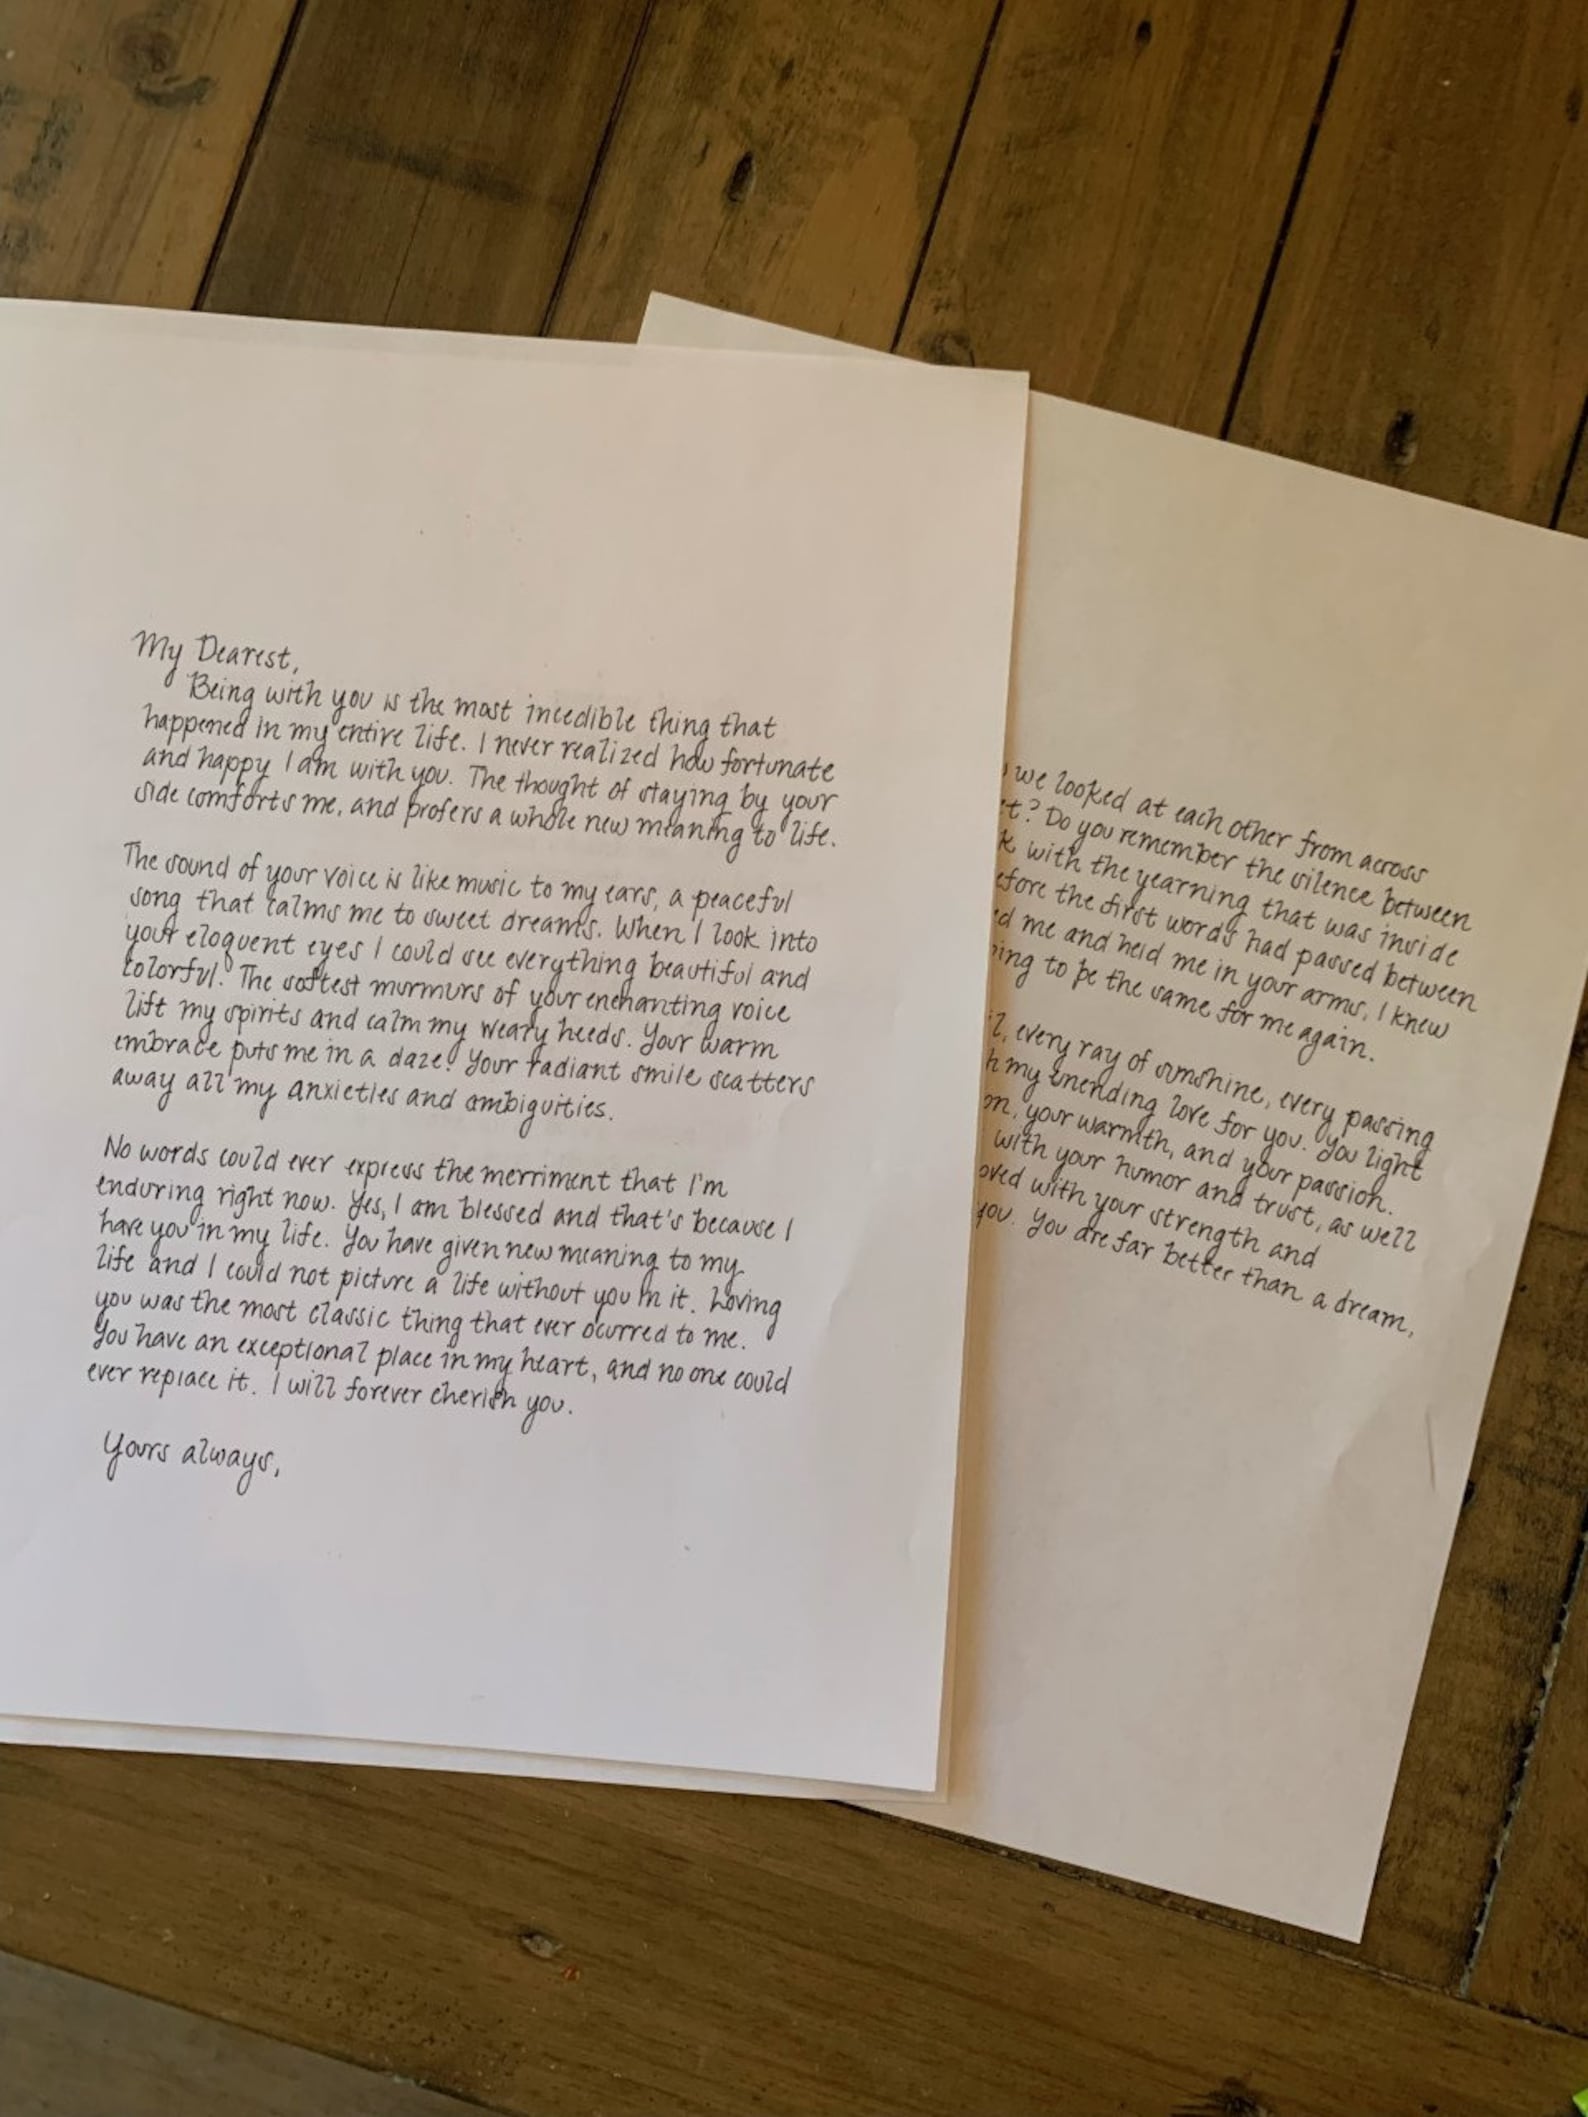 My Dearest,
Being with you is the most incedible thing that
happened in my entire life. I never realized how fortunate
and happy I am with you. The thought of staying by your
side comforts me, and profers a whole new meaning to life.
The sound of your voice is like music to my ears, a peaceful
song that calms me to sweet dreams. When I look into
your eloquent eyes I could see everything beautiful and
colorful. The softest murmurs of your enchanting voice
lift my spirits and calm my weary heeds. Your warm
embrace puts me in a daze. Your radiant smile scatters
away all my anxieties and ambiguities.
No words could ever express the merriment that I'm
enduring right now. Yes, I am blessed and that's because I
have you in my life. You have given new meaning to my
life and I could not picture a life without you in it. Loving
you was the most classic thing that ever ocurred to me.
You have an exceptional place in my heart, and no one could
ever replace it. I will forever cherish you.
Yours always,
we looked at each other from across
t? Do you remember the silence between
k with the yearning that was inside
efore the first words had passed between
ed me and held me in your arms, I knew
ing to be the same for me again.
l, every ray of sunshine, every passing
h my unending love for you. You light
on, your warmth, and your passion.
with your humor and trust, as well
oved with your strength and
you. You are far better than a dream,